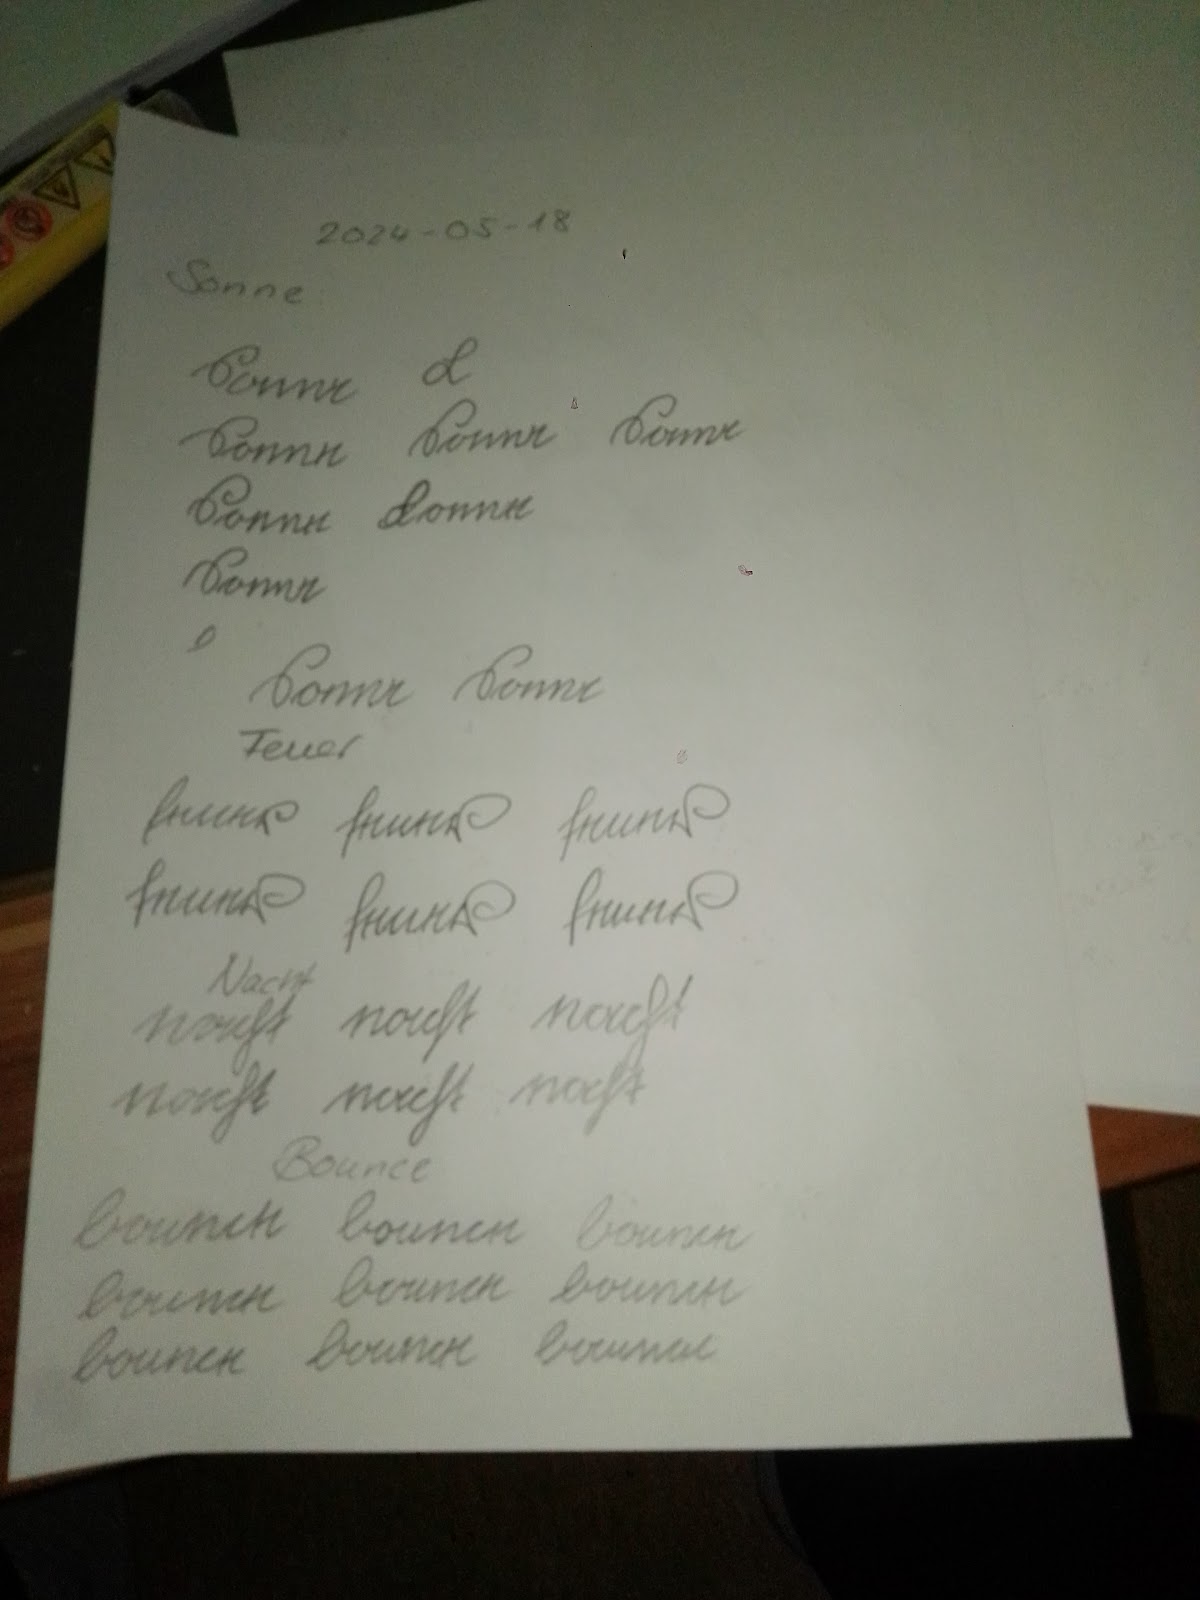 2024-05-18
Sonne
Sonne S
Sonne Sonne Sonne
Sonne Sonne
Sonne
Sonne Sonne
Feuer
feuer feuer feuer
feuer feuer feuer
Nacht
nacht nacht nacht
nacht nacht nacht
Bounce
bounce bounce bounce
bounce bounce bounce
bounce bounce bounce